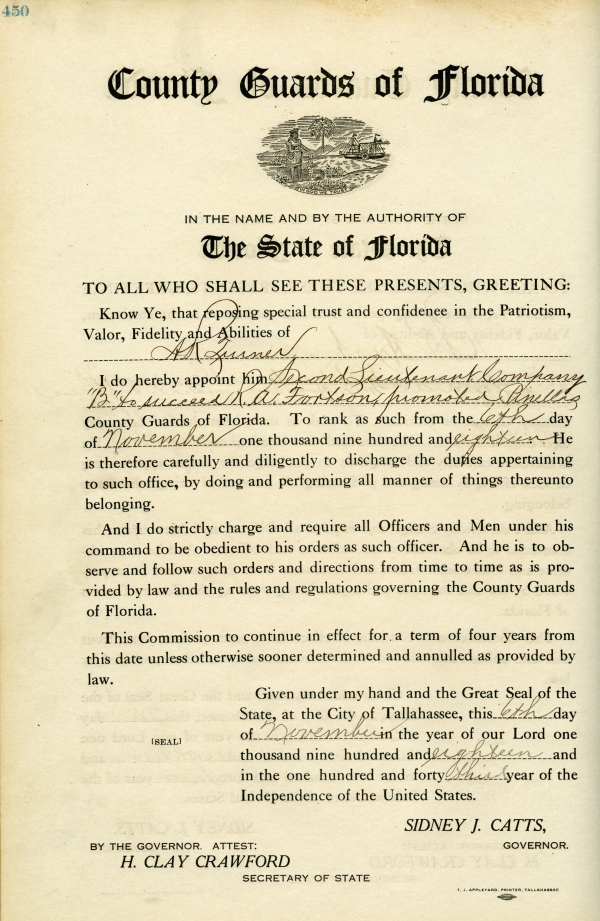 450
County Guards of Florida
IN THE NAME AND BY THE AUTHORITY OF
The State of Florida
TO ALL WHO SHALL SEE THESE PRESENTS, GREETING:
Know Ye, that reposing special trust and confidence in the Patriotism,
Valor, Fidelity and Abilities of
A R Turner
I do hereby appoint him Second Lieutenant Company
"B" to succeed R. A. Fortson, promoted Pinellas
County Guards of Florida. To rank as such from the 6th day
of November one thousand nine hundred and eighteen He
is therefore carefully and diligently to discharge the duties appertaining
to such office, by doing and performing all manner of things thereunto
belonging.
And I do strictly charge and require all Officers and Men under his
command to be obedient to his orders as such officer. And he is to ob-
serve and follow such orders and directions from time to time as is pro-
vided by law and the rules and regulations governing the County Guards
of Florida.
This Commission to continue in effect for a term of four years from
this date unless otherwise sooner determined and annulled as provided by
law.
Given under my hand and the Great Seal of the
State, at the City of Tallahassee, this 6th day
of November in the year of our Lord one
[SEAL]
thousand nine hundred and eighteen and
in the one hundred and forty third year of the
Independence of the United States.
SIDNEY J. CATTS,
GOVERNOR.
BY THE GOVERNOR. ATTEST:
H. CLAY CRAWFORD
SECRETARY OF STATE
T. J. APPLEYARD, PRINTER, TALLAHASSEE